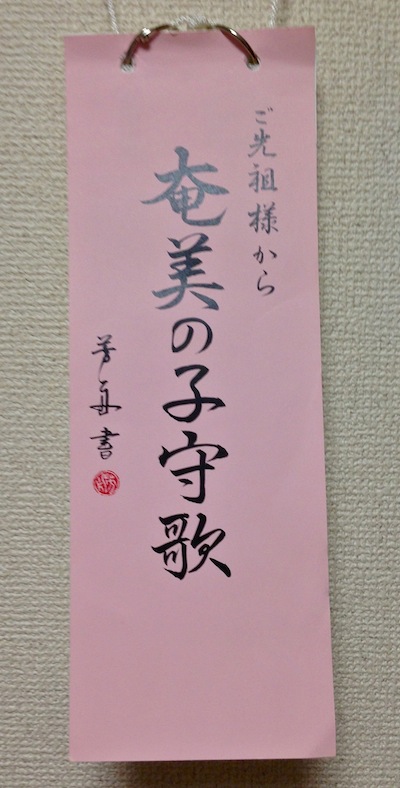 ご先祖様から
奄美の子守歌
芳舟書